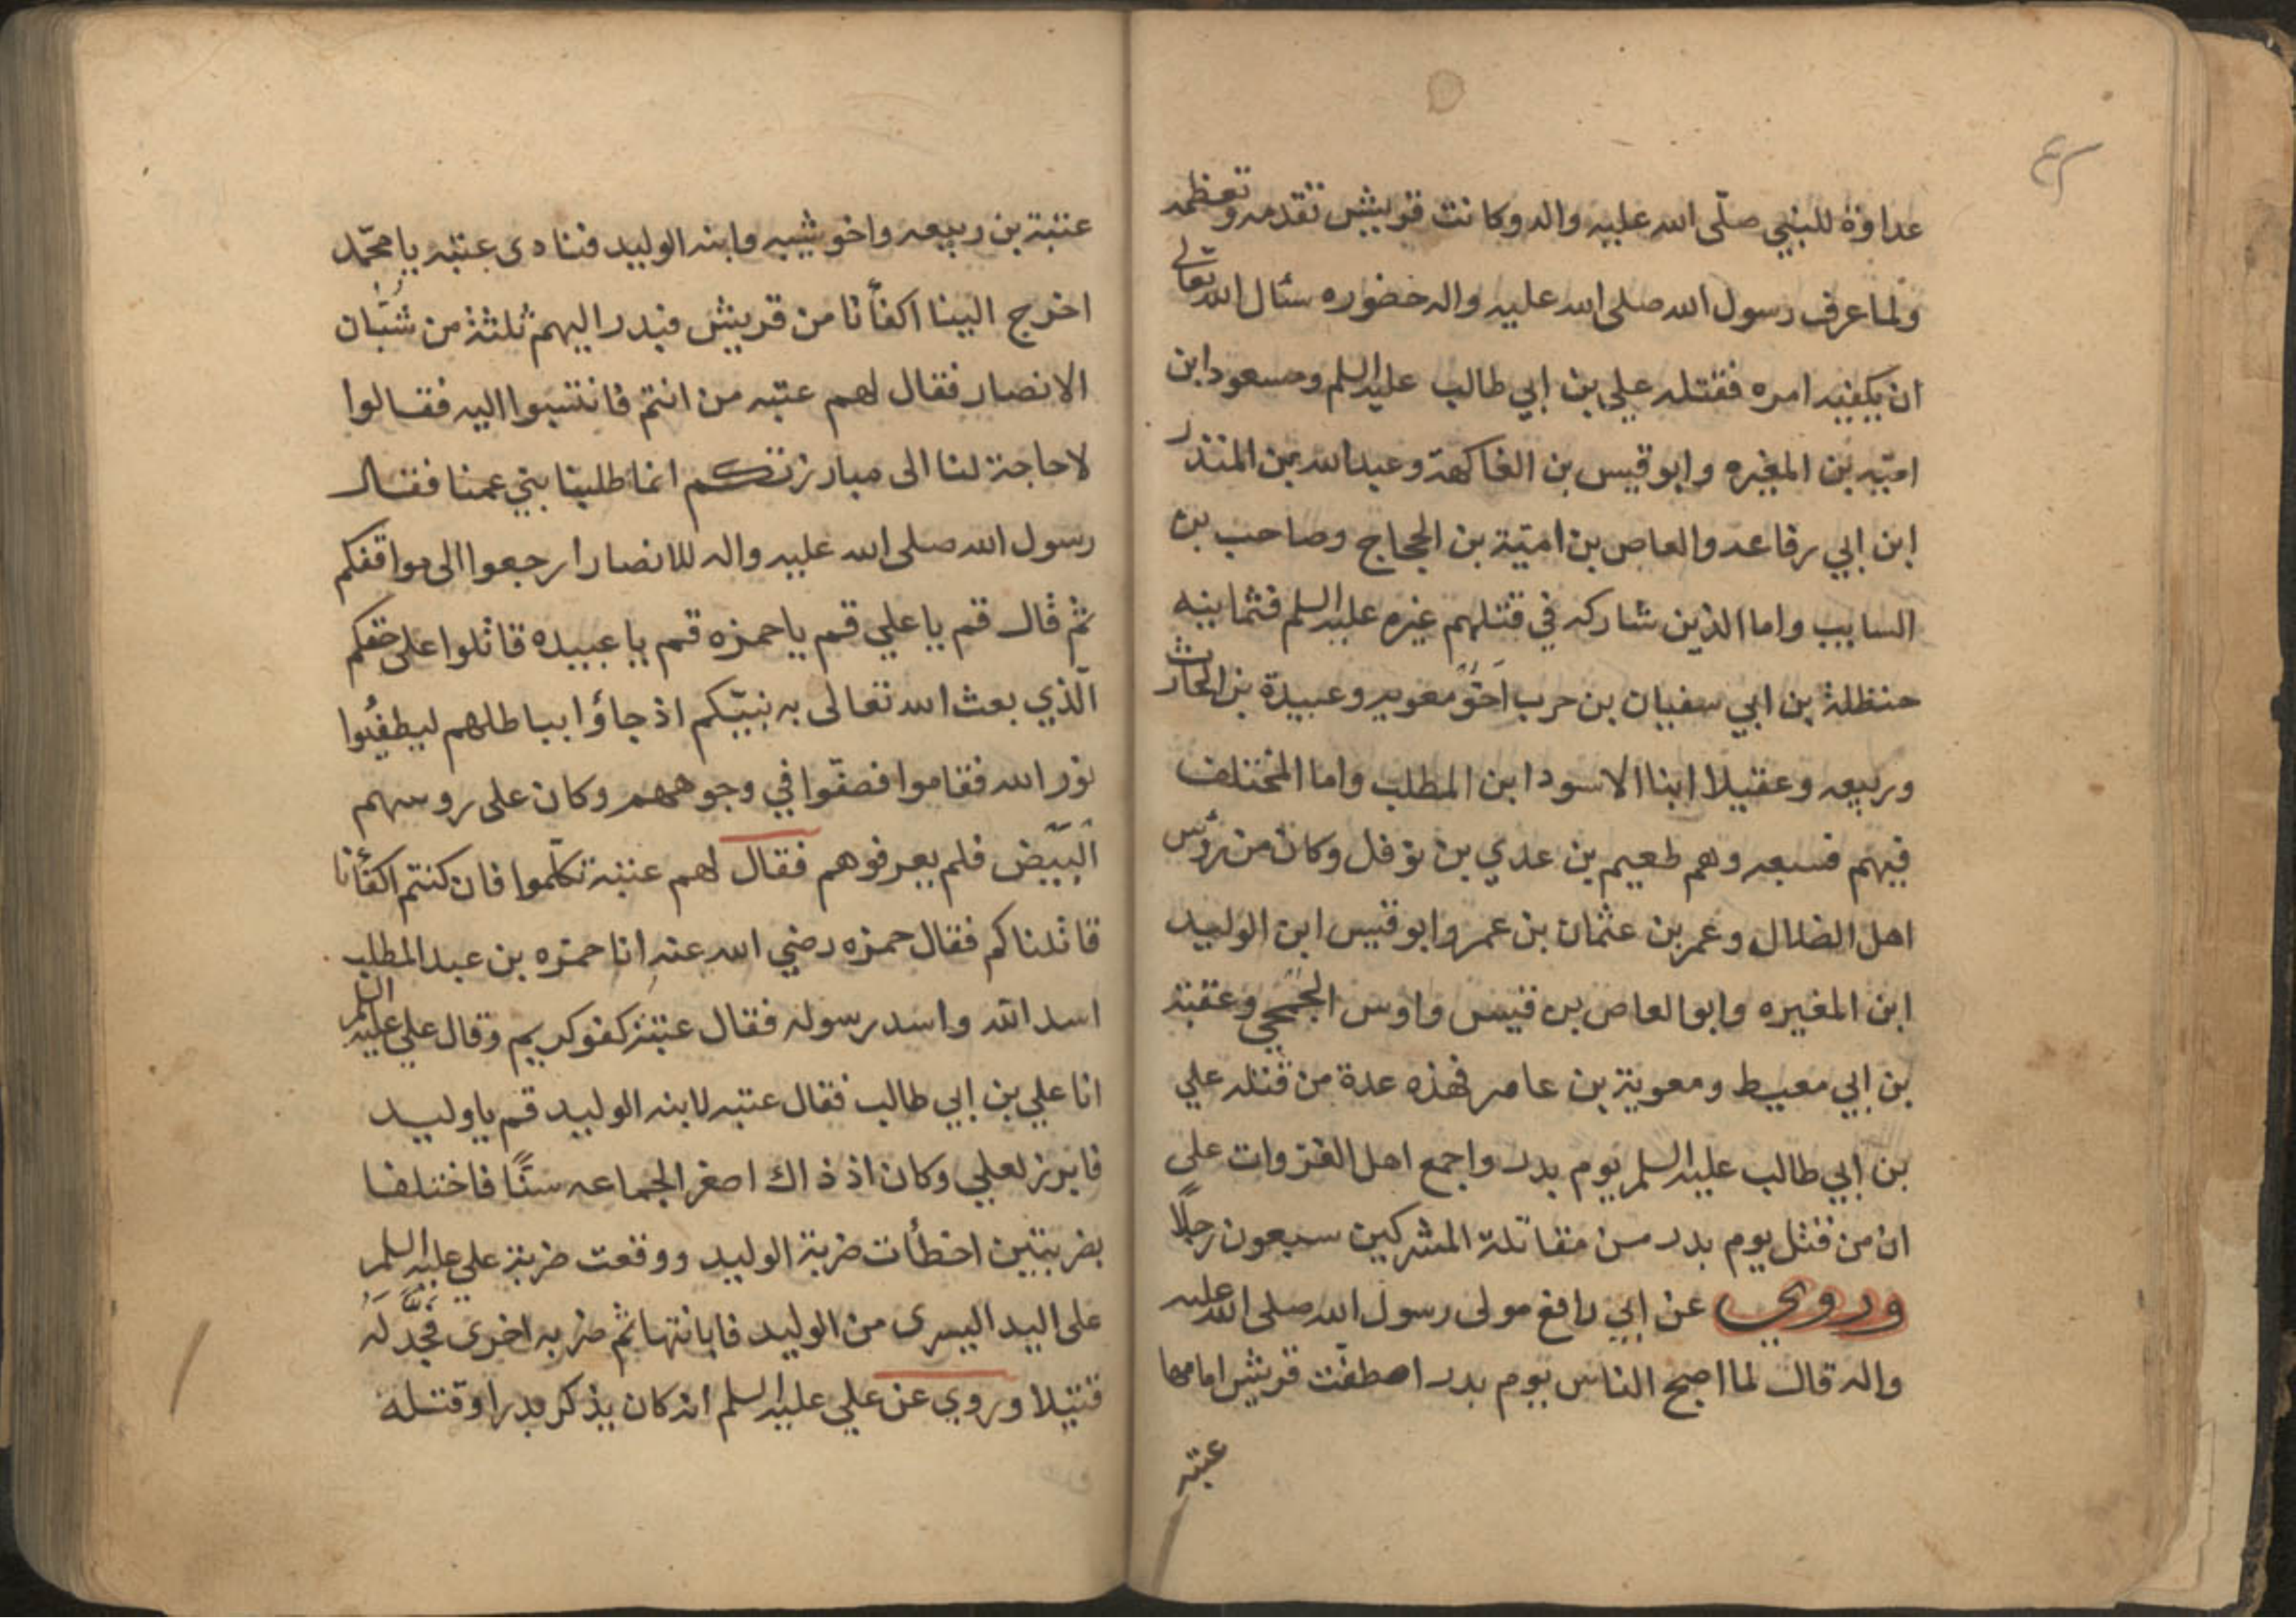 عداوة للنبي صلّى الله عليه واله وكانت قريش تقدمه وتعظمه
ولما عرف رسول الله صلى الله عليه واله حضوره سئال الله تعالى
ان يكفيه امره فقتله علي بن ابي طالب عليه السلم ومسعود ابن
اميّه بن المغيره وابو قيس بن الفاكهة وعبد الله بن المنذر
ابن ابي رفاعه والعاص بن اميّة بن الحجاج وصاحب بن
السايب واما الذين شاركه في قتلهم غيره عليه السلم فثمانيه
حنظلة بن ابي سفيان بن حرب اخو معويه وعبيدة بن الحارث
وربيعه وعقيلا ابنا الاسود ابن المطلب واما المختلف
فيهم فسبعه وهم طعيم بن عدي بن نوفل وكان من رؤس
اهل الضلال وعمر بن عثمان بن عمر وابو قيس ابن الوليد
ابن المغيره وابو العاص بن قيس واوس الجمحي وعقبة
بن ابي معيط ومعوية بن عامر فهذه عدة من قتله علي
بن ابي طالب عليه السلم يوم بدر واجمع اهل الغزوات على
ان من قتل يوم بدر من مقاتلة المشركين سبعون رجلًا
وروي عن ابي رافع مولى رسول الله صلى الله عليه
واله قال لما اصبح الناس يوم بدر اصطفّت قريش امامها
عتبه
عتبة بن ربيعه واخو شيبه وابنه الوليد فنادى عتبه يا محمّد
اخرج الينا اكفأنا من قريش فبدر اليهم ثلثة من شبّان
الانصار فقال لهم عتبه من انتم فانتسبوا اليه فقالوا
لا حاجة لنا الى مبارزتكم انما طلبنا بني عمنا فقال
رسول الله صلى الله عليه واله للانصار ارجعوا الى مواقفكم
ثم قال قم يا علي قم يا حمزه قم يا عبيده قاتلوا على حقكم
الّذي بعث الله تعالى به نبيّكم اذ جاؤا بباطلهم ليطفئوا
نور الله فقاموا فصفّوا في وجوههم وكان على روسهم
البَيّض فلم يعرفوهم فقال لهم عتبة تكلّموا فان كنتم اكفأنا
قاتلناكم فقال حمزه رضي الله عنه انا حمزه بن عبد المطلب
اسد الله واسد رسوله فقال عتبة كفو كريم وقال علي عليه السلم
انا علي بن ابي طالب فقال عتبه لابنه الوليد قم يا وليد
فابرز لعلي وكان اذ ذاك اصغر الجماعه سنًّا فاختلفا
بضربتين اخطأت ضربة الوليد ووقعت ضربة علي عليه السلم
على اليد اليسرى من الوليد فابانتها ثم ضربه اخرى فجدّله
قتيلا وروي عن علي عليه السلم انه كان يذكر بدرا وقتله